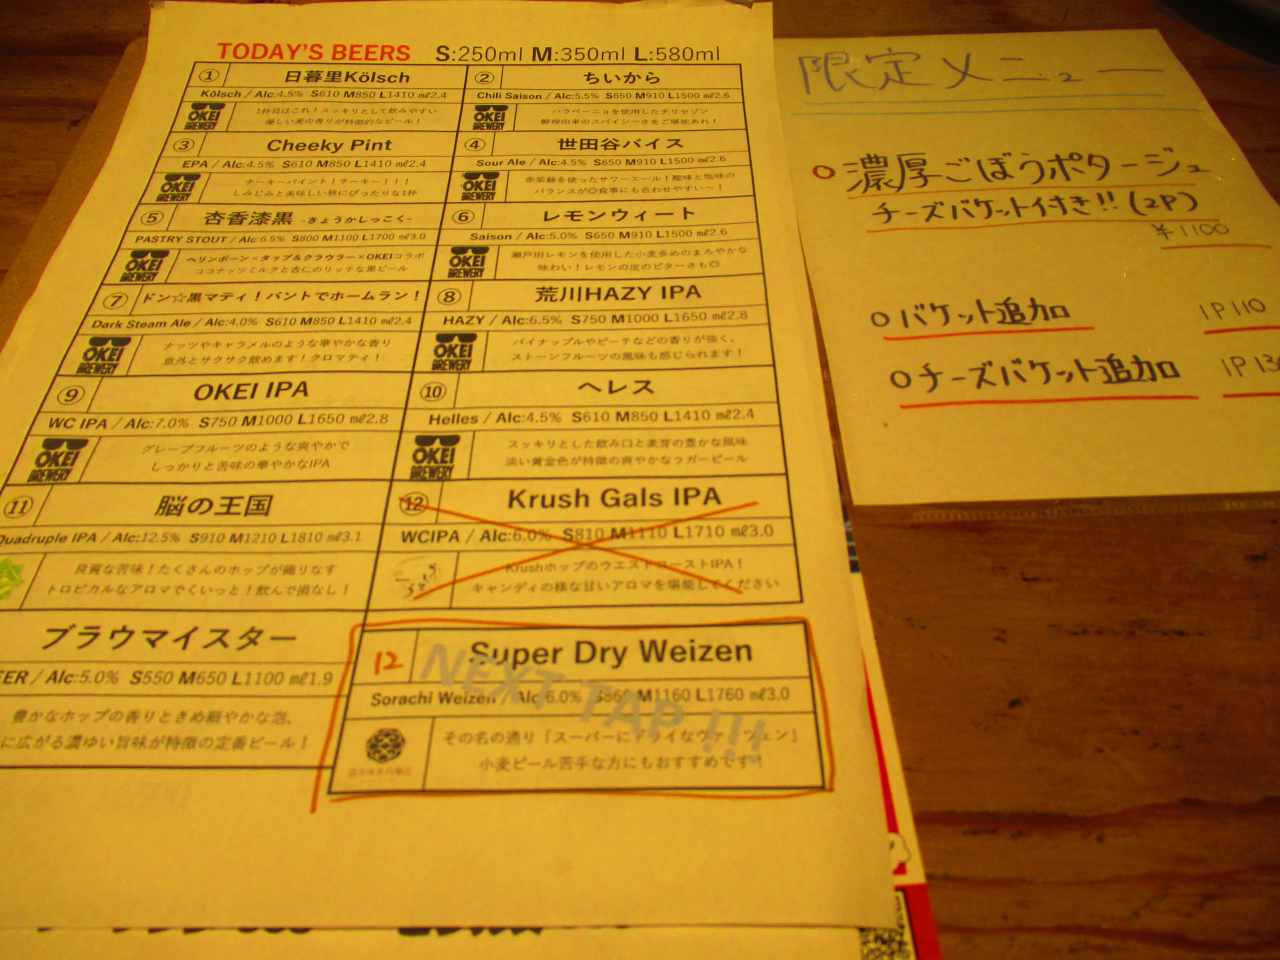 TODAY'S BEERS S:250ml M:350ml L:580ml
① 日暮里Kölsch
Kölsch / Alc:4.5% S610 M850 L1410 ㎖2.4
OKEI BREWERY
1杯目はこれ！スッキリとして飲みやすい
優しい麦の香りが特徴的なビール！
② ちいから
Chili Saison / Alc:5.5% S650 M910 L1500 ㎖2.6
OKEI BREWERY
ハラペーニョを使用したチリセゾン
酵母由来のスパイシーさをご堪能あれ！
③ Cheeky Pint
EPA / Alc:4.5% S610 M850 L1410 ㎖2.4
OKEI BREWERY
チーキーパイント！チーキー！！！
しみじみと美味しい秋にぴったりな1杯
④ 世田谷バイス
Sour Ale / Alc:4.5% S650 M910 L1500 ㎖2.6
OKEI BREWERY
赤紫蘇を使ったサワーエール！酸味と塩味の
バランスが◎食事にも合わせやすい～！
⑤ 杏香漆黒 -きょうかしっこく-
PASTRY STOUT / Alc:6.5% S800 M1100 L1700 ㎖3.0
OKEI BREWERY
ヘリンボーン×タップ&クラウラー×OKEIコラボ
ココナッツミルクと杏仁のリッチな黒ビール
⑥ レモンウィート
Saison / Alc:5.0% S650 M910 L1500 ㎖2.6
OKEI BREWERY
瀬戸田レモンを使用した小麦多めのまろやかな
味わい！レモンの皮のビターさも◎
⑦ ドン☆黒マティ！バントでホームラン！
Dark Steam Ale / Alc:4.0% S610 M850 L1410 ㎖2.4
OKEI BREWERY
ナッツやキャラメルのような華やかな香り
意外とサクサク飲めます！クロマティ！
⑧ 荒川HAZY IPA
HAZY / Alc:6.5% S750 M1000 L1650 ㎖2.8
OKEI BREWERY
パイナップルやピーチなどの香りが強く、
ストーンフルーツの風味も感じられます！
⑨ OKEI IPA
WC IPA / Alc:7.0% S750 M1000 L1650 ㎖2.8
OKEI BREWERY
グレープフルーツのような爽やかで
しっかりと苦味の華やかなIPA
⑩ ヘレス
Helles / Alc:4.5% S610 M850 L1410 ㎖2.4
OKEI BREWERY
スッキリとした飲み口と麦芽の豊かな風味
淡い黄金色が特徴の爽やかなラガービール
⑪ 脳の王国
Quadruple IPA / Alc:12.5% S910 M1210 L1810 ㎖3.1
良質な苦味！たくさんのホップが織りなす
トロピカルなアロマでくいっと！飲んで損なし！
⑫ Krush Gals IPA
WCIPA / Alc:6.0% S810 M1110 L1710 ㎖3.0
KrushホップのウエストコーストIPA！
キャンディの様な甘いアロマを堪能してください
ブラウマイスター
EER / Alc:5.0% S550 M650 L1100 ㎖1.9
豊かなホップの香りときめ細やかな泡、
に広がる濃ゆい旨味が特徴の定番ビール！
12 Super Dry Weizen
NEXT TAP!!!
Sorachi Weizen / Alc:6.0% S860 M1160 L1760 ㎖3.0
その名の通り「スーパーにドライなヴァイツェン」
小麦ビール苦手な方にもおすすめです！
限定メニュー
○濃厚ごぼうポタージュ
チーズバケット付き!! (2P)
¥1100
○バケット追加 1P110
○チーズバケット追加 1P13